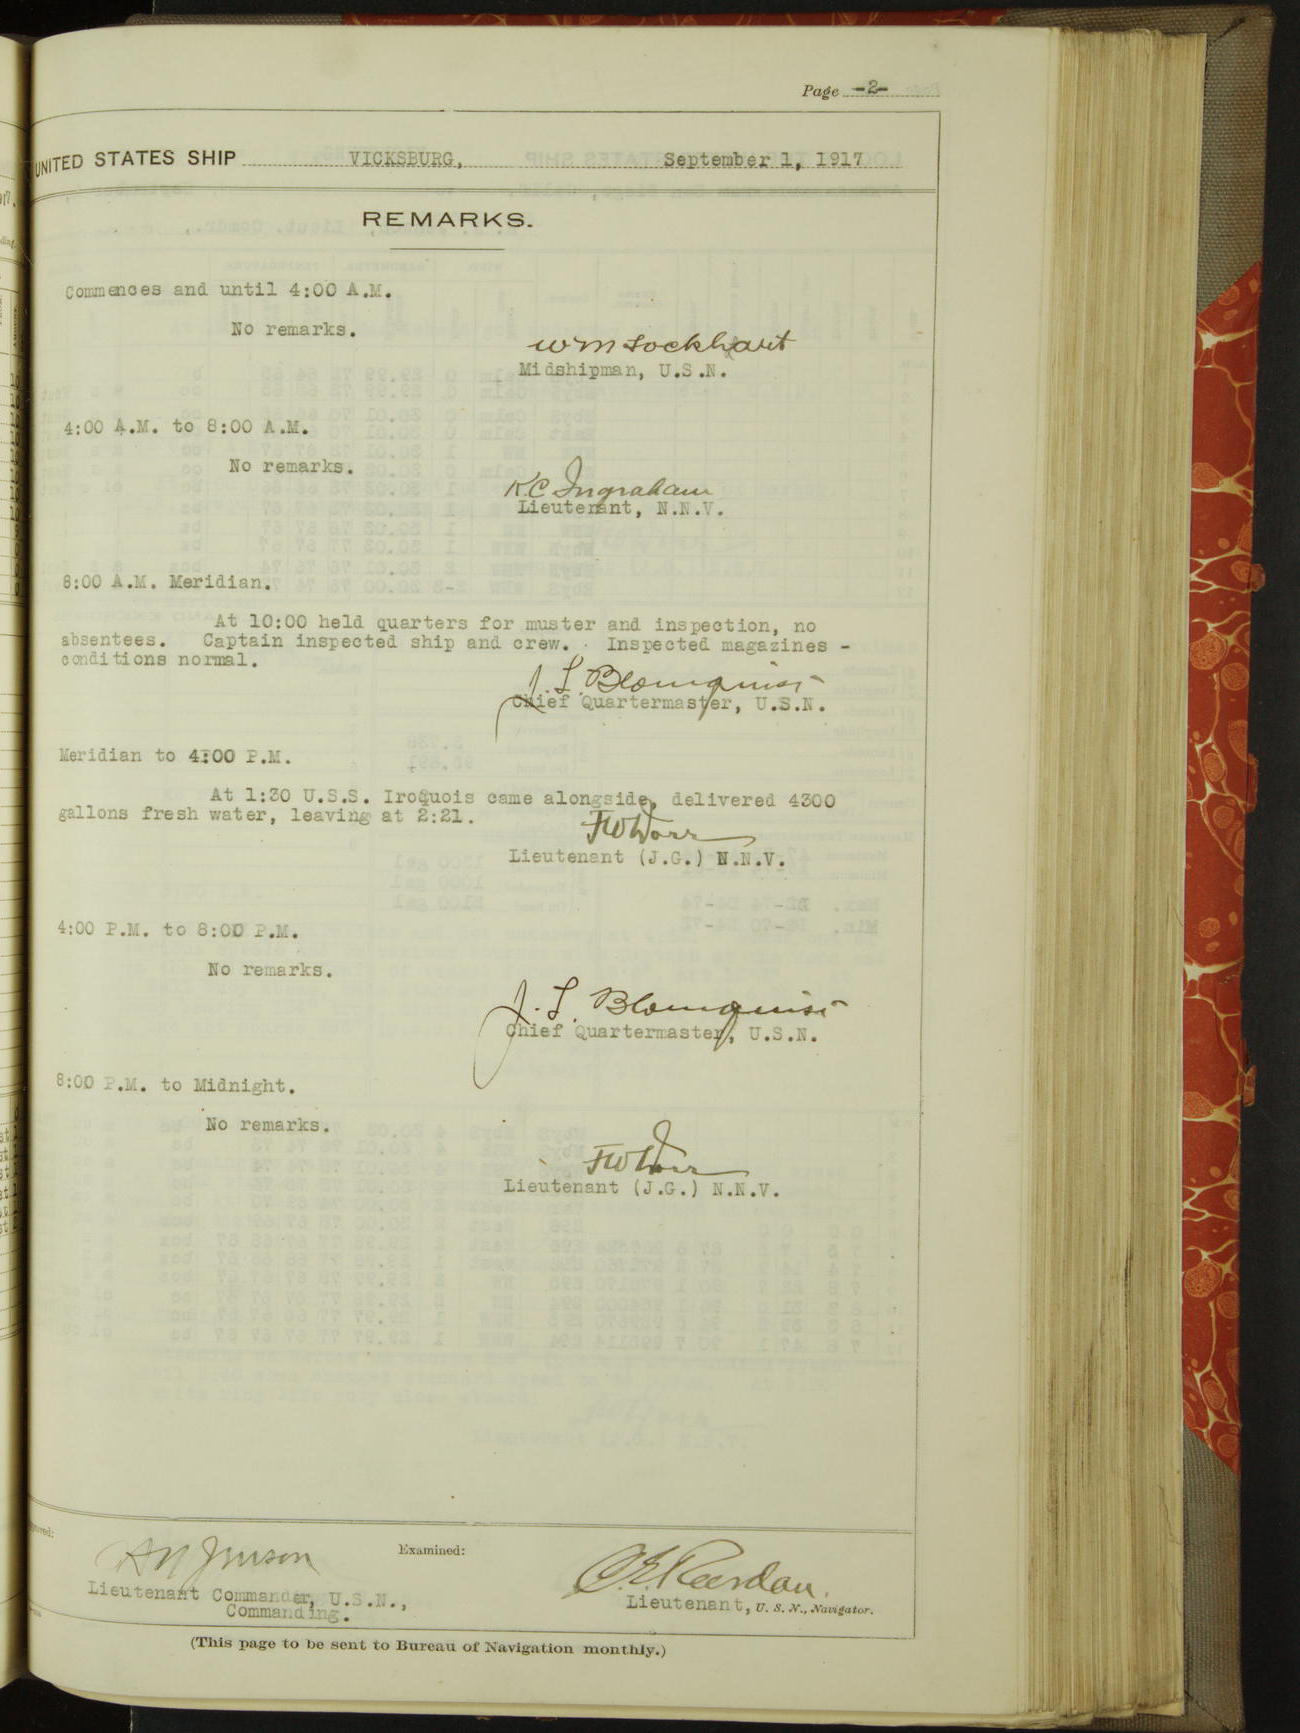 Page -2-
UNITED STATES SHIP VICKSBURG, September 1, 1917
REMARKS.
Commences and until 4:00 A.M.
No remarks.
Wm Lockhart
Midshipman, U.S.N.
4:00 A.M. to 8:00 A.M.
No remarks.
K C Ingraham
Lieutenant, N.N.V.
8:00 A.M. Meridian.
At 10:00 held quarters for muster and inspection, no
absentees. Captain inspected ship and crew. Inspected magazines -
conditions normal.
J. L. Blomquist
Chief Quartermaster, U.S.N.
Meridian to 4:00 P.M.
At 1:30 U.S.S. Iroquois came alongside, delivered 4300
gallons fresh water, leaving at 2:21.
Lieutenant (J.G.) N.N.V.
4:00 P.M. to 8:00 P.M.
No remarks.
J. L. Blomquist
Chief Quartermaster, U.S.N.
8:00 P.M. to Midnight.
No remarks.
Lieutenant (J.G.) N.N.V.
Examined:
Lieutenant Commander, U.S.N.,
Commanding.
C. E. Reordan.
Lieutenant, U. S. N., Navigator.
(This page to be sent to Bureau of Navigation monthly.)